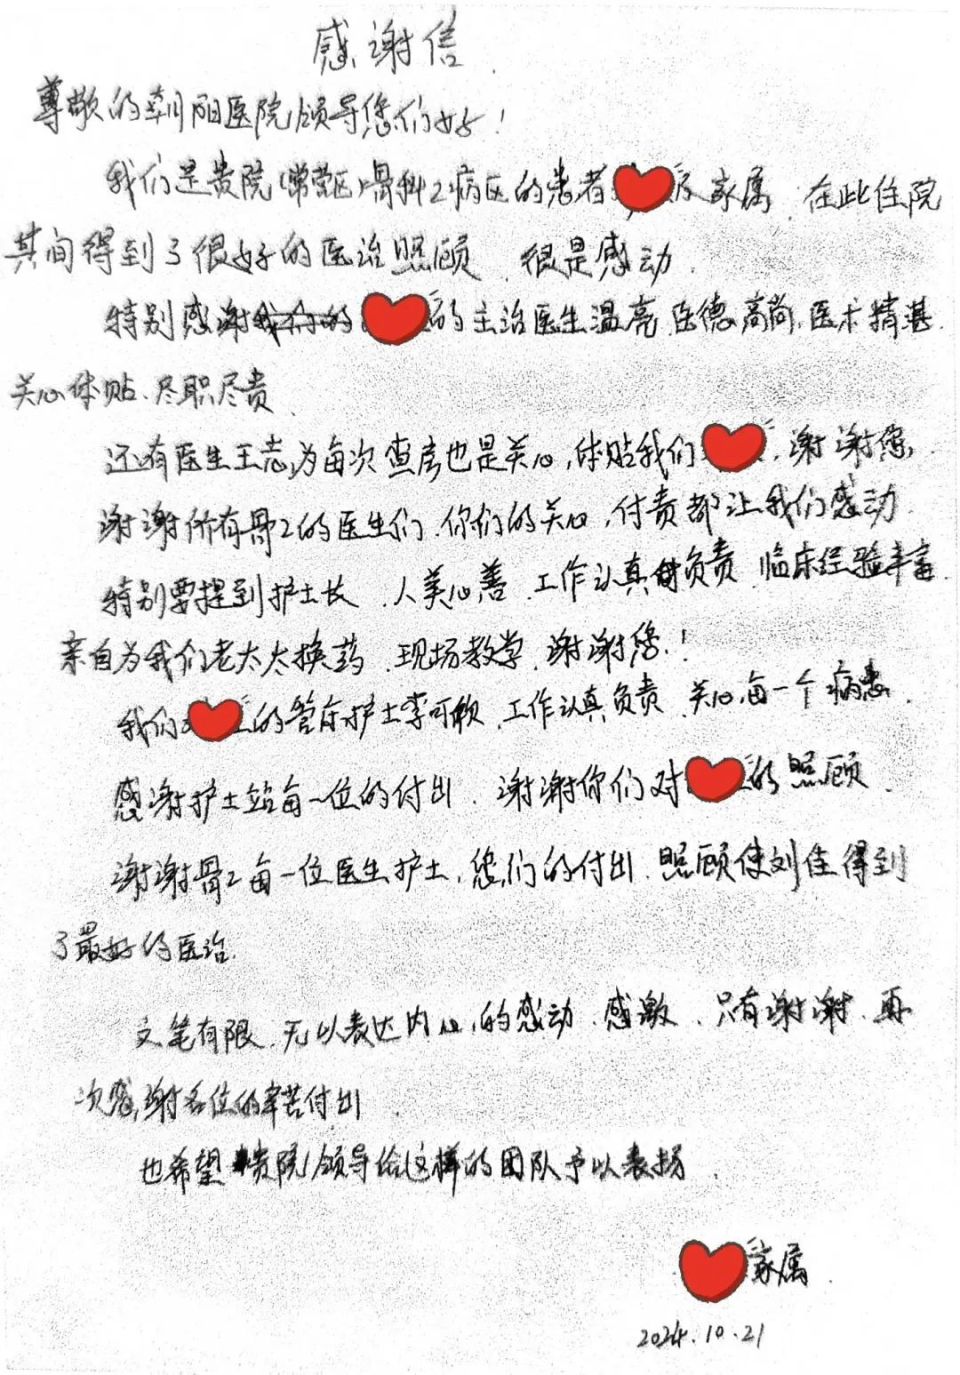 感谢信
尊敬的朝阳医院领导您们好！
我们是贵院(常营区)骨科2病区的患者 家属 在此住院
其间得到了很好的医治照顾 很是感动.
特别感谢 的主治医生温亮 医德高尚,医术精湛.
关心体贴.尽职尽责
还有医生王志为每次查房也是关心,体贴我们 ,谢谢您,
谢谢所有骨2的医生们.你们的关心,付责都让我们感动
特别要提到护士长 人美心善 工作认真负责 临床经验丰富
亲自为我们老太太换药 现场教学 谢谢您!
我们 的管床护士李可敕 工作认真负责 关心每一个病患.
感谢护士站每一位的付出 谢谢你们对 的照顾
谢谢骨2每一位医生护士,您们的付出.照顾使刘佳得到
了最好的医治.
文笔有限.无以表达内心的感动.感激.只有谢谢.再
次感谢各位的辛苦付出
也希望贵院领导给这样的团队予以表扬
家属.
2024.10.21